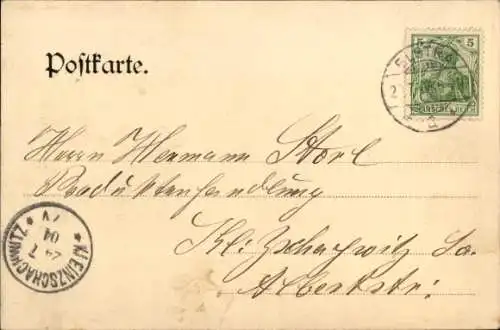 Postkarte.
5 5
Herrn Hermann Storl
Produktenhandlung
Klzschachwitz Sa.
Albertstr:
* KLEINZSCHACHWITZ *
7 04